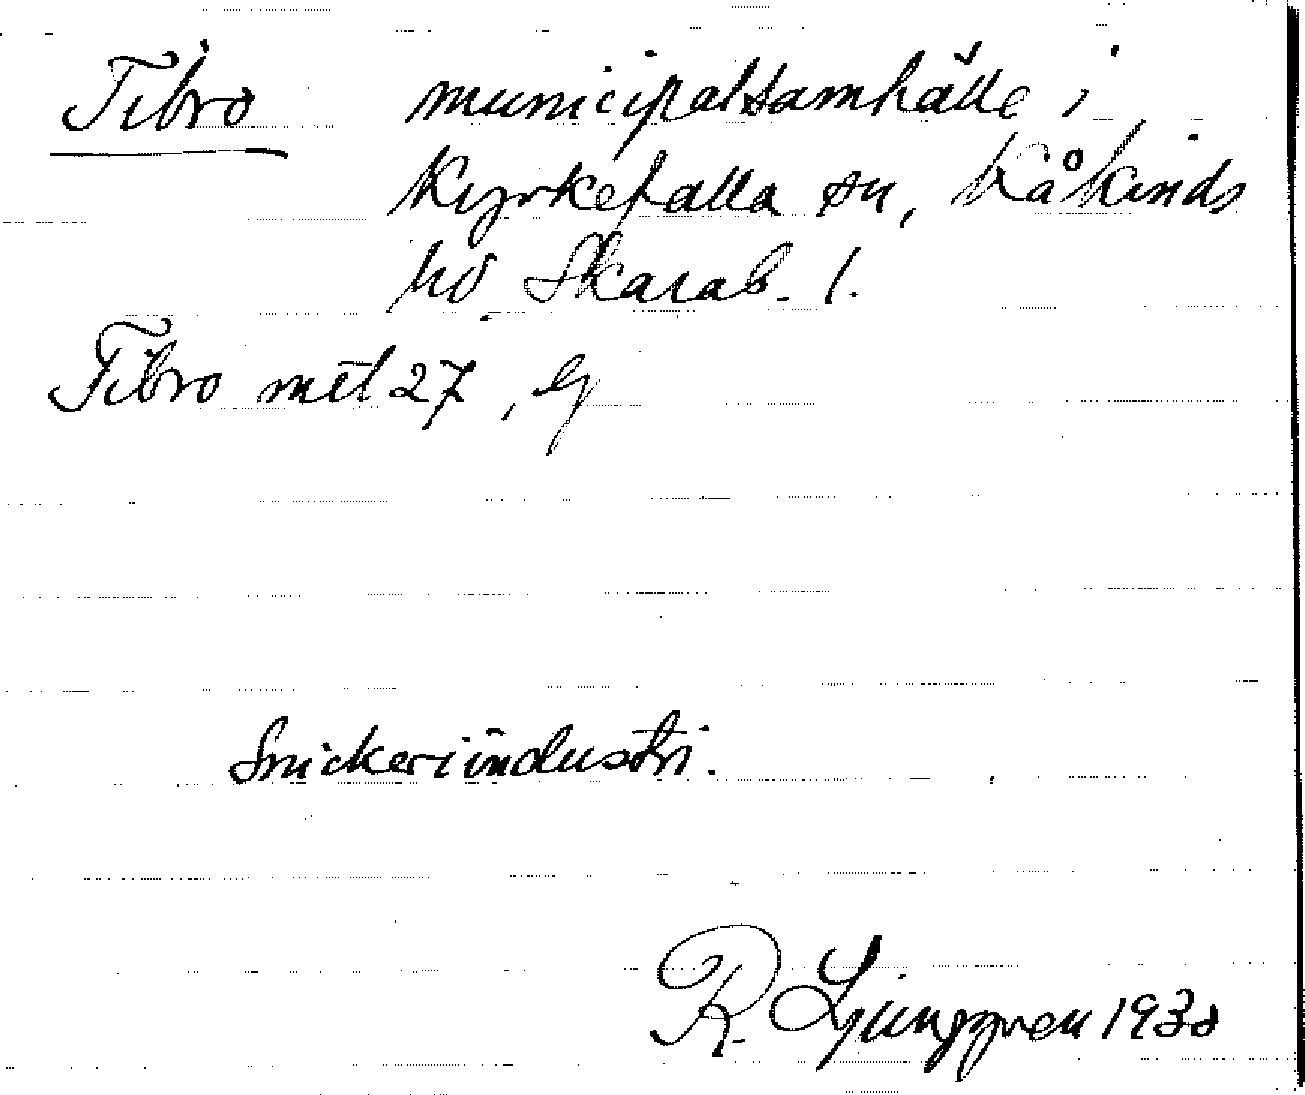 Tibro municipalsamhälle i
Kyrkefalla sn, Kåkinds
hd Skarab. l.
Tibro mtl 27, Gg
Snickeriindustri.
R. Ljunggren 1930